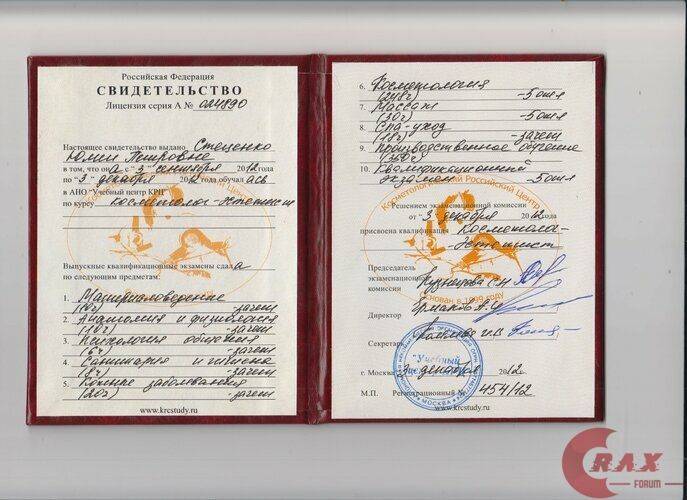 Российская Федерация
СВИДЕТЕЛЬСТВО
Лицензия серия А № 024890
Настоящее свидетельство выдано Стеценко
Юлии Петровне
в том, что он а с "3" сентября 2012 года
по "3" декабря 2012 года обучал ась
в АНО "Учебный центр КРЦ"
по курсу Косметолог-эстетист
Выпускные квалификационные экзамены сдал а
по следующим предметам:
1. Материаловедение
-зачет
2. Анатомия и физиология
-зачет
3. Психология общения
(6ч) -зачет
4. Санитария и гигиена
(8ч) -зачет
5. Кожные заболевания
(20ч) -зачет
www.krcstudy.ru
6. Косметология
(248ч) -5отл
7. Массаж
(30ч) -5отл
8. Спа-уход
(18ч) -зачет
9. Производственное обучение
10. Квалификационный
экзамен -5отл
Косметологический Российский Центр
Решением экзаменационной комиссии
от "3" декабря 2012 года
присвоена квалификация Косметолог-
эстетист
Председатель
экзаменационной
комиссии Кузнецова С.И
основан в 1999 году
Директор Ермакова
Секретарь
"Учебный
МОСКВА
г. Москва 3 декабря 2012
М.П. Регистрационный № 454/12
www.krcstudy.ru
CRAX
FORUM